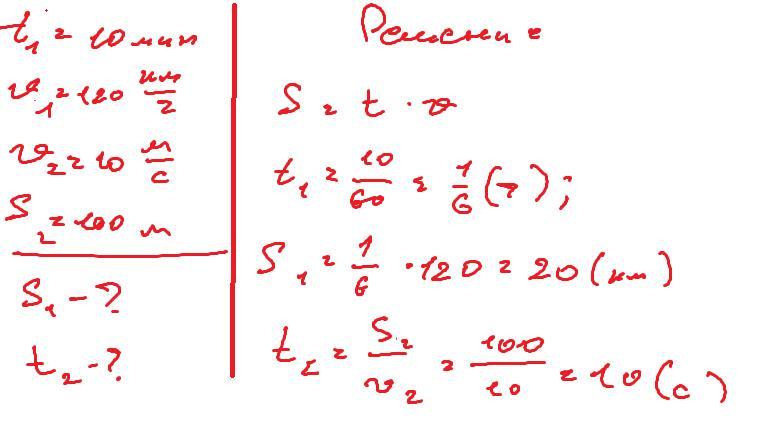 t₁ = 10 мин
v₁ = 120 км/г
v₂ = 10 м/с
S₂ = 100 м
S₁ - ?
t₂ - ?
Решение
S = t · v
t₁ = 10/60 = 1/6 (г);
S₁ = 1/6 · 120 = 20 (км)
t₂ = S₂/v₂ = 100/10 = 10 (с)